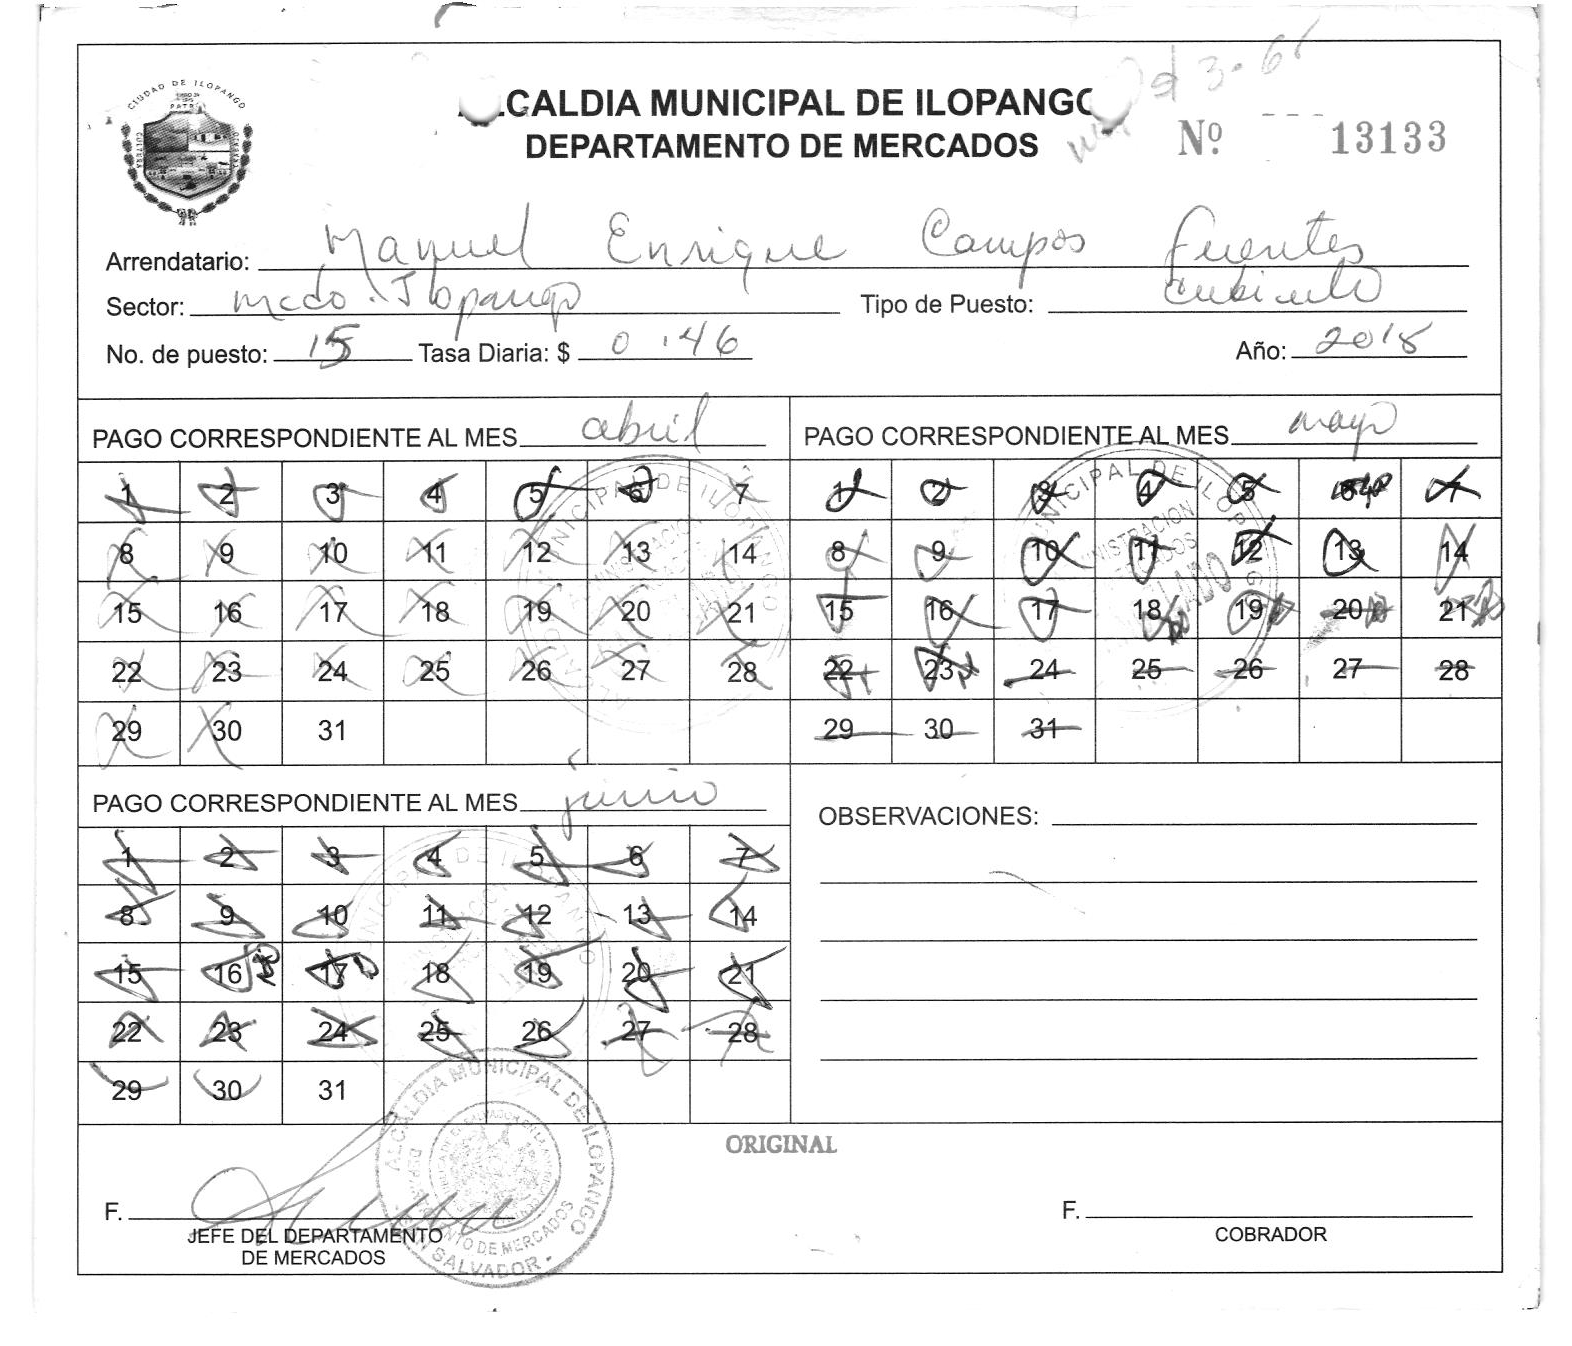 CIUDAD DE ILOPANGO
ALCALDIA MUNICIPAL DE ILOPANGO
DEPARTAMENTO DE MERCADOS
Nº 13133
Arrendatario: Manuel Enrique Campos Fuentes
Sector: Mcdo. Ilopango Tipo de Puesto:
No. de puesto: 15 Tasa Diaria: $ 0.46 Año: 2018
PAGO CORRESPONDIENTE AL MES abril
1 2 3 4 5 6 7
8 9 10 11 12 13 14
15 16 17 18 19 20 21
22 23 24 25 26 27 28
29 30 31
PAGO CORRESPONDIENTE AL MES mayo
1 2 3 4 5 6 7
8 9 10 11 12 13 14
15 16 17 18 19 20 21
22 23 24 25 26 27 28
29 30 31
PAGO CORRESPONDIENTE AL MES junio
1 2 3 4 5 6 7
8 9 10 11 12 13 14
15 16 17 18 19 20 21
22 23 24 25 26 27 28
29 30 31
OBSERVACIONES:
ORIGINAL
ALCALDIA MUNICIPAL DE ILOPANGO
DEPARTAMENTO DE MERCADOS
SAN SALVADOR
F.
JEFE DEL DEPARTAMENTO
DE MERCADOS
F.
COBRADOR